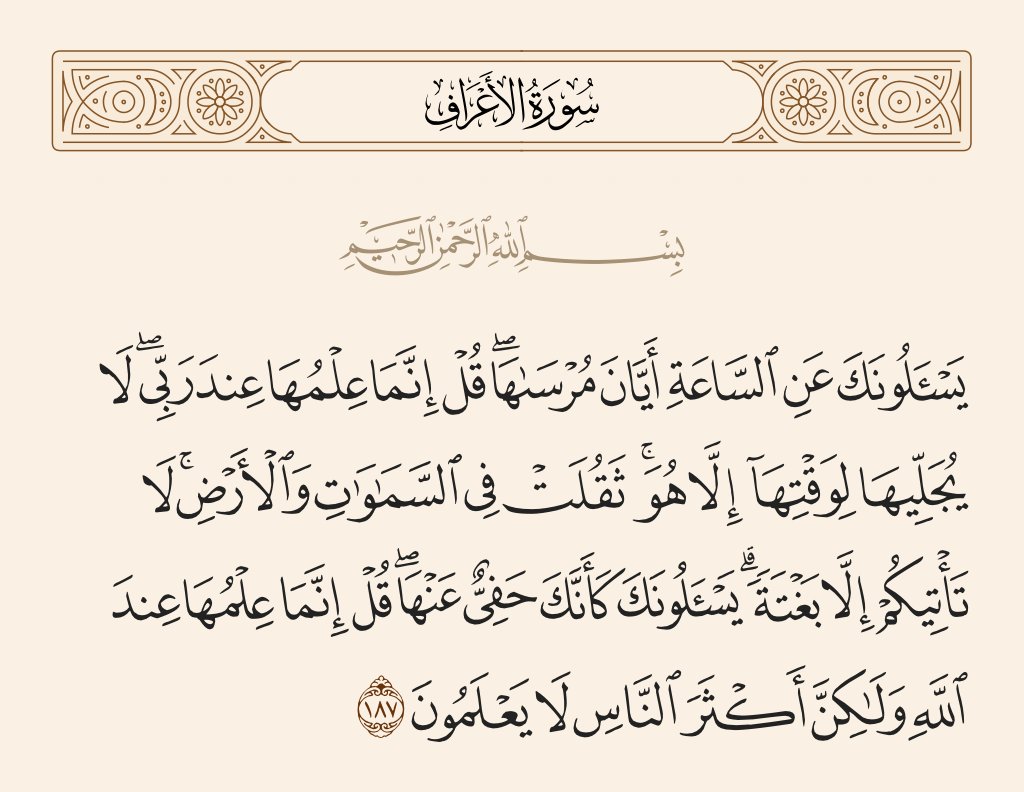 سُورَةُ الأَعْرَافِ
بِسْمِ ٱللَّهِ ٱلرَّحْمَٰنِ ٱلرَّحِيمِ
يَسْـَٔلُونَكَ عَنِ ٱلسَّاعَةِ أَيَّانَ مُرْسَىٰهَا ۖ قُلْ إِنَّمَا عِلْمُهَا عِندَ رَبِّى ۖ لَا
يُجَلِّيهَا لِوَقْتِهَآ إِلَّا هُوَ ۚ ثَقُلَتْ فِى ٱلسَّمَٰوَٰتِ وَٱلْأَرْضِ ۚ لَا
تَأْتِيكُمْ إِلَّا بَغْتَةً ۗ يَسْـَٔلُونَكَ كَأَنَّكَ حَفِىٌّ عَنْهَا ۖ قُلْ إِنَّمَا عِلْمُهَا عِندَ
ٱللَّهِ وَلَٰكِنَّ أَكْثَرَ ٱلنَّاسِ لَا يَعْلَمُونَ ١٨٧